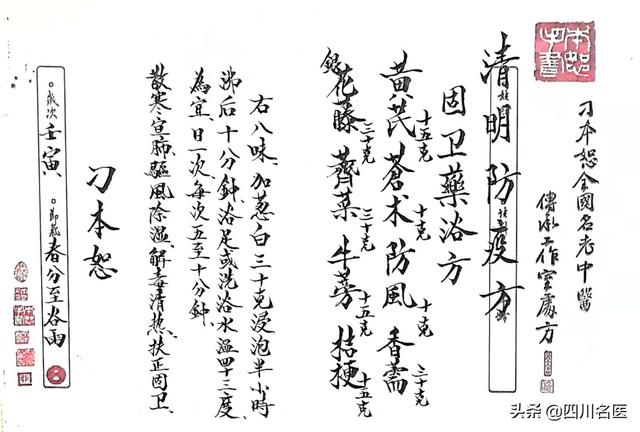 刁本恕全國名老中醫
傳承工作室處方
清明防疫方
固卫藥浴方
黄芪十五克 蒼术十克 防風十克 香薷三十克
銀花藤三十克 薺菜三十克 牛蒡十五克 桔梗十五克
右八味、加葱白三十克浸泡半小時
沸后十分鈡、浴足或洗浴水温四十三度、
為宜日一次、每次五至十分鈡、
散寒宣肺、驅風除濕、解毒清热、扶正固卫、
刁本恕
。歲次壬寅 。節氣春分至谷雨
头条 @四川名医